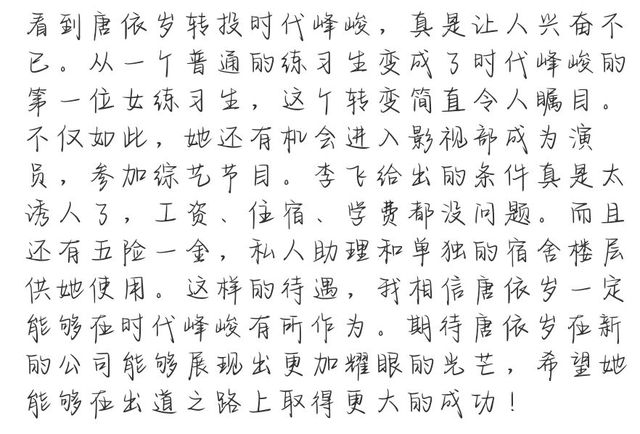 看到唐依岁转投时代峰峻，真是让人兴奋不
已。从一个普通的练习生变成了时代峰峻的
第一位女练习生，这个转变简直令人瞩目。
不仅如此，她还有机会进入影视部成为演
员，参加综艺节目。李飞给出的条件真是太
诱人了，工资、住宿、学费都没问题。而且
还有五险一金，私人助理和单独的宿舍楼层
供她使用。这样的待遇，我相信唐依岁一定
能够在时代峰峻有所作为。期待唐依岁在新
的公司能够展现出更加耀眼的光芒，希望她
能够在出道之路上取得更大的成功！